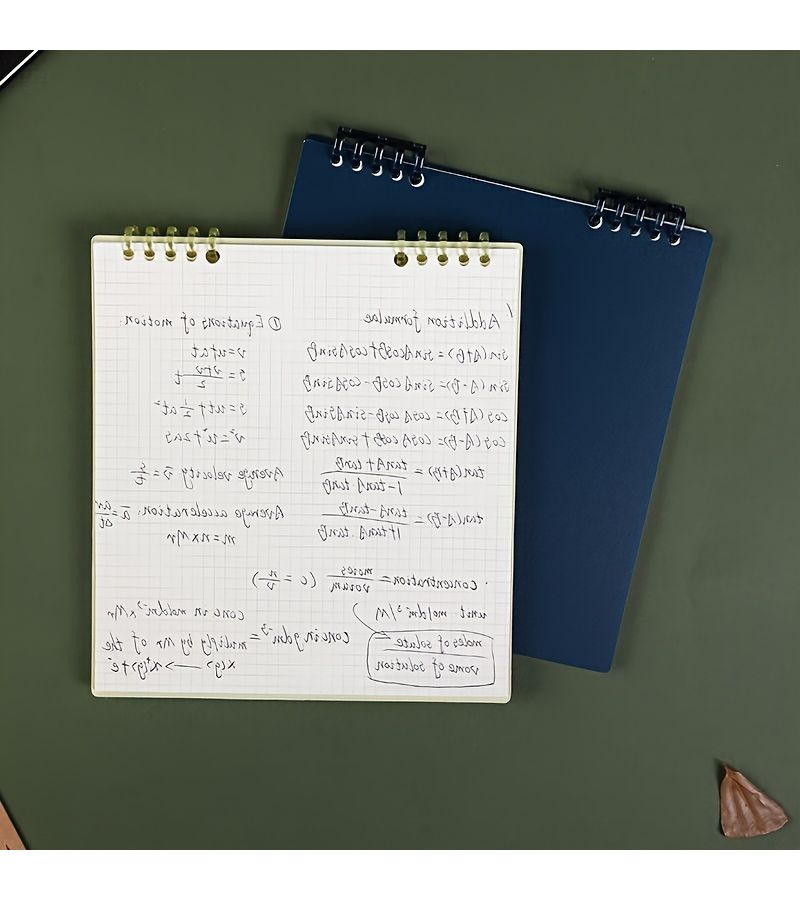 Addition formulae
sin(A+B)=sinAcosB+cosAsinB
sin(A-B)=sinAcosB-cosAsinB
cos(A+B)=cosAcosB-sinAsinB
cos(A-B)=cosAcosB+sinAsinB
tan(A+B)=tanA+tanB
1-tanA tanB
tan(A-B)=tanA-tanB
1+tanA.tanB
① Equations of motion.
v=u+at
s=ut+½at²
v²=u²+2as
Average velocity v̄=s/t
Average acceleration: ā=Δv/Δt
m=n×Mr
· concentration=moles (c = n/v)
unit mol/dm⁻³/M
moles of solute
vome of solution
conc in gdm⁻³=
conc in moldm⁻³×Mr
muliply by Mr of the
x(g) → x⁺(g)+e⁻